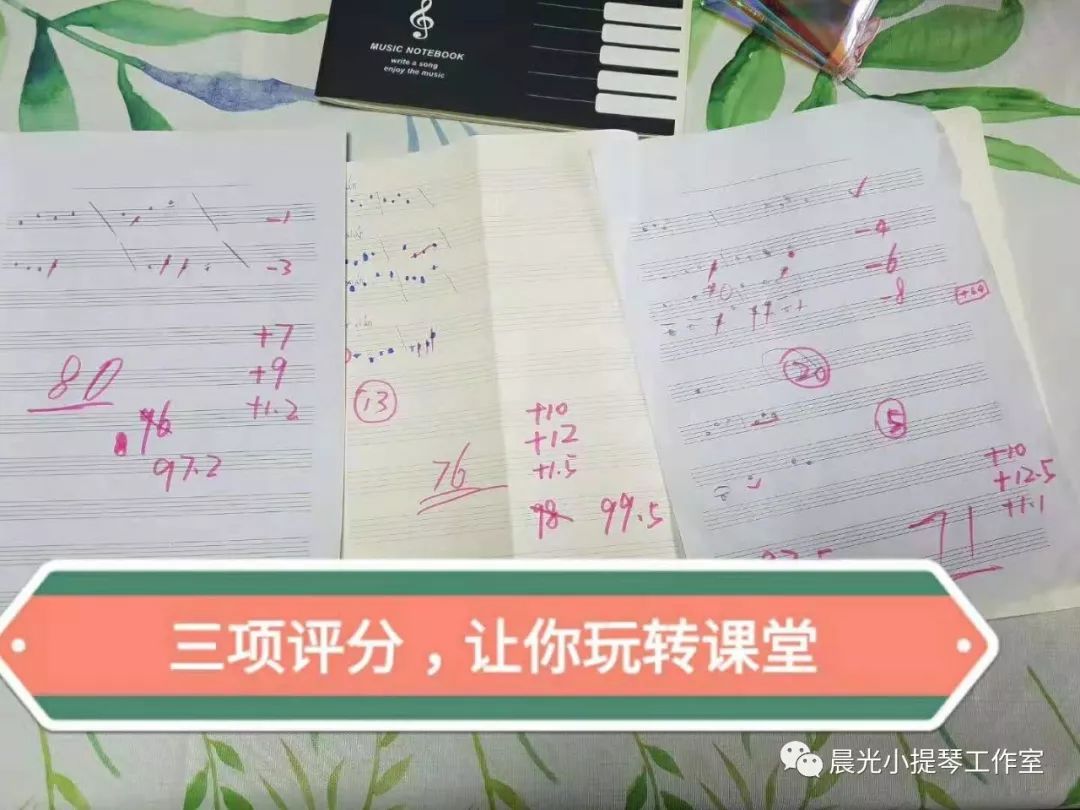 MUSIC NOTEBOOK
write a song
enjoy the music
-1
-3
+7
+9
+1.2
80
96
97.2
13
76
+10
+12
+1.5
98
99.5
-4
-6
-8
20
5
+10
+12.5
+1.1
71
三项评分，让你玩转课堂
晨光小提琴工作室